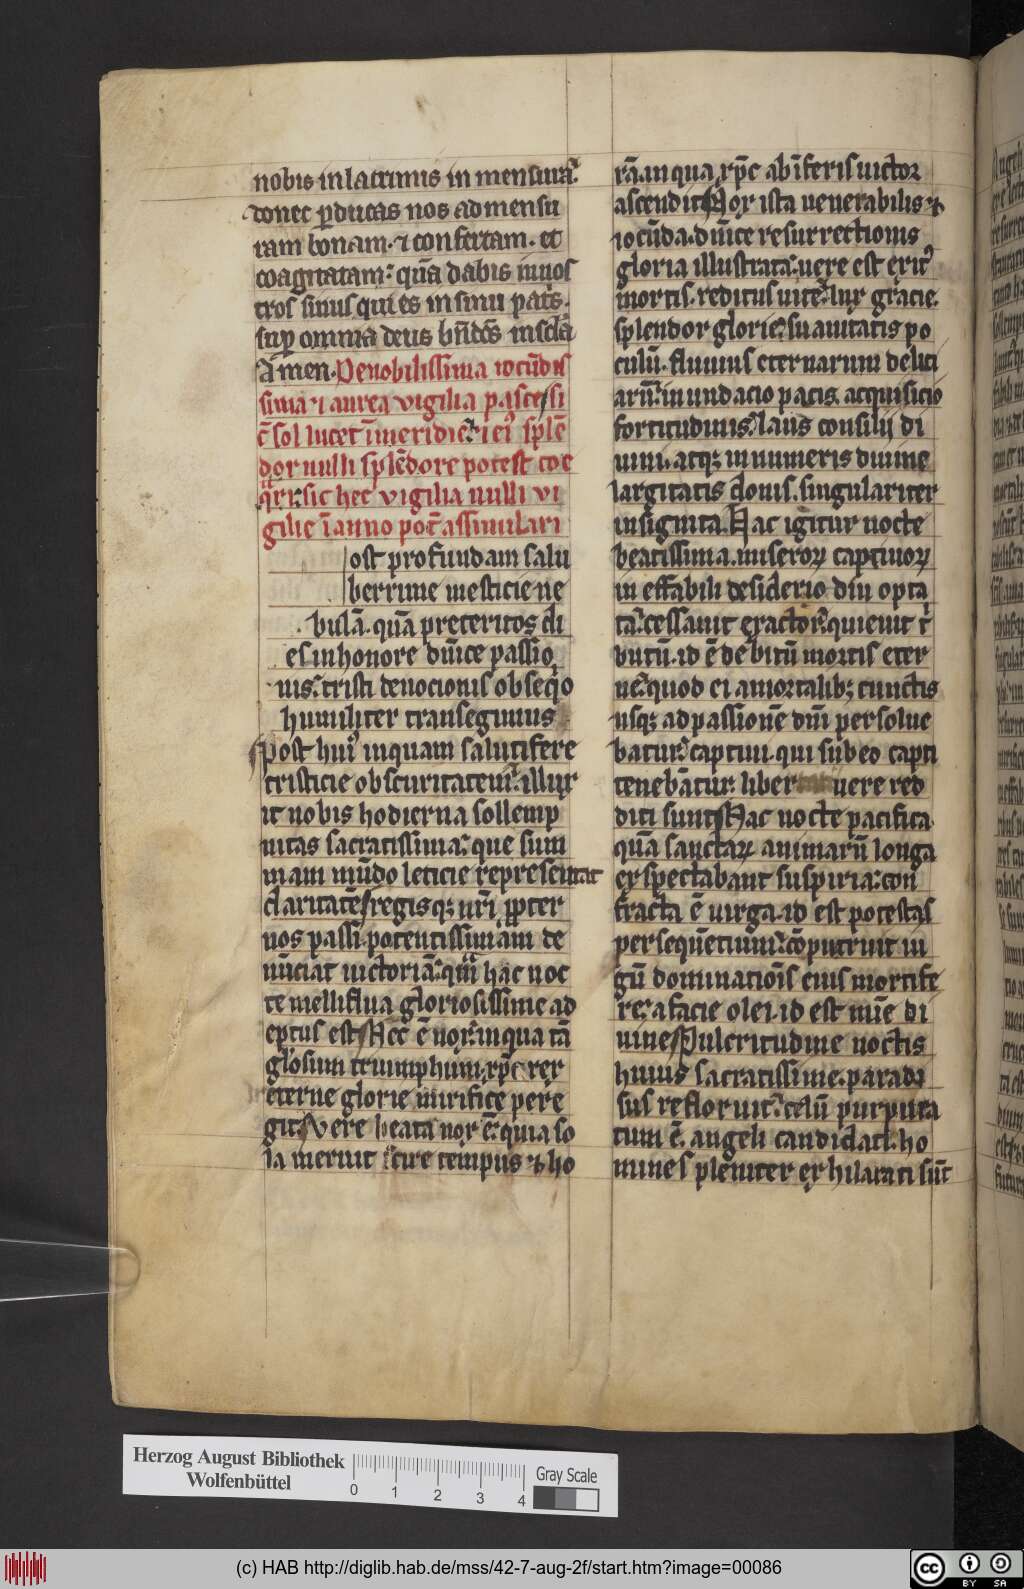 nobis in lacrimis in mensura.
donec ꝑducas nos ad mensu
ram bonam. ⁊ confertam. et
coagitatam: quā dabis in uos
tros sinus qui es in sinu patꝭ.
suꝑ omnia deus bn̄dcs in scła
Amen. De nobilissima iocūdis
sima ⁊ aurea vigilia pasce si
c̄ sol lucet ī meridie. ⁊ eiꝰ splē
dor nulli splēdore potest coe
q̄ri: sic hec vigilia nulli vi
gilie ī anno pot̄ assimulari
ost profundam salu
berrime mesticie ne
bulā. quā preteritos di
es in honore dn̄ice passio
nis. tristi deuocionis obseqͥo
humiliter transegimus
Post huiꝰ inquam salutifere
tristicie obscuritatem. illux
it nobis hodierna sollemp
nitas sacratissima: que sum
mam mūdo leticie representat
claritatē regisqꝫ nr̄i ꝓpter
nos passi. potentissimam de
nūciat uictoriā: qm̄ hac noc
te melliflua gloriosissime ad
eptus est Hec ē nox. in qua tā
gl̓osum triumphum. xp̄c rex
eterne glorie mirifice pere
git. Vere beata nox ē. quia so
la meruit scire tempus ⁊ ho
rā. in qua. xp̄c ab īferis uictor
ascendit Nox ista uenerabilis ⁊
iocūda. dn̄ice resurrectionis
gloria illustrata. uere est exitꝰ
mortis. reditus uite. lux gracie.
splendor glorie. suauitatis po
culū. fluuius eternarum delici
arū. inundacio pacis. acquisicio
fortitudinis. laus consilij di
uini. atqꝫ innumeris diuine
largitatis donis. singulariter
insignita. Hac igitur nocte
beatissima. miseroꝝ captiuoꝝ
ineffabili desiderio diu opta
ta. cessauit exactor. quieuit tͥ
butū. id ē debitū mortis eter
ne. quod ei a mortalibꝫ cunctis
usqꝫ ad passionē dn̄i persolue
batur. captiui. qui sub eo capti
tenebātur. liber uere red
diti sunt Hac nocte pacifica.
quā sanctaꝝ animarū longa
expectabant suspiria: con
fracta ē uirga. id est potestas
persequētium. cōputruit iu
gū dominatiōis eius mortife
re. a facie olei. id est mīe di
uine Pulcritudine noctis
huius sacratissime. paradi
sus refloruit. celū purpura
tum ē. angeli candidati. ho
mines pleniter exhilarati sūt
Herzog August Bibliothek
Wolfenbüttel
0 1 2 3 4
Gray Scale
(c) HAB http://diglib.hab.de/mss/42-7-aug-2f/start.htm?image=00086
cc BY SA